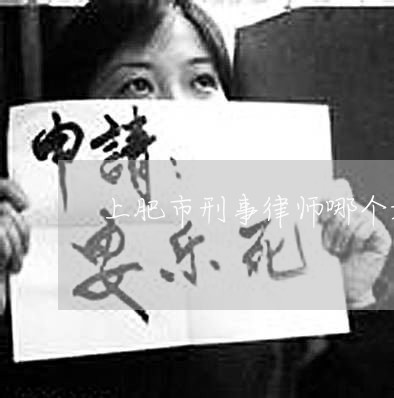 申請：
上肥市刑事律师哪个
要乐死